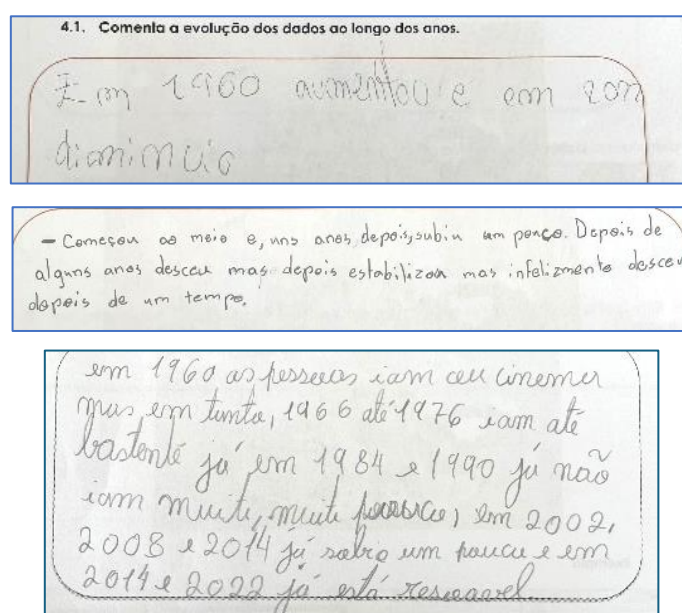 4.1. Comenta a evolução dos dados ao longo dos anos.
Em 1960 aumentou e em
diominuio
- Começou ao meio e, uns anos, depois, subiu um pouco. Depois de
alguns anos desceu mas depois estabilizou mas infelizmente desceu
depois de um tempo.
em 1960 as pessoas iam ceu cinemer
mas em tanta, 1966 até 1976 iam até
bastente já em 1984 e 1990 já não
iam muite, muite em 2002,
2008 e 2014 já um poucu e em
2014 e 2022 já está